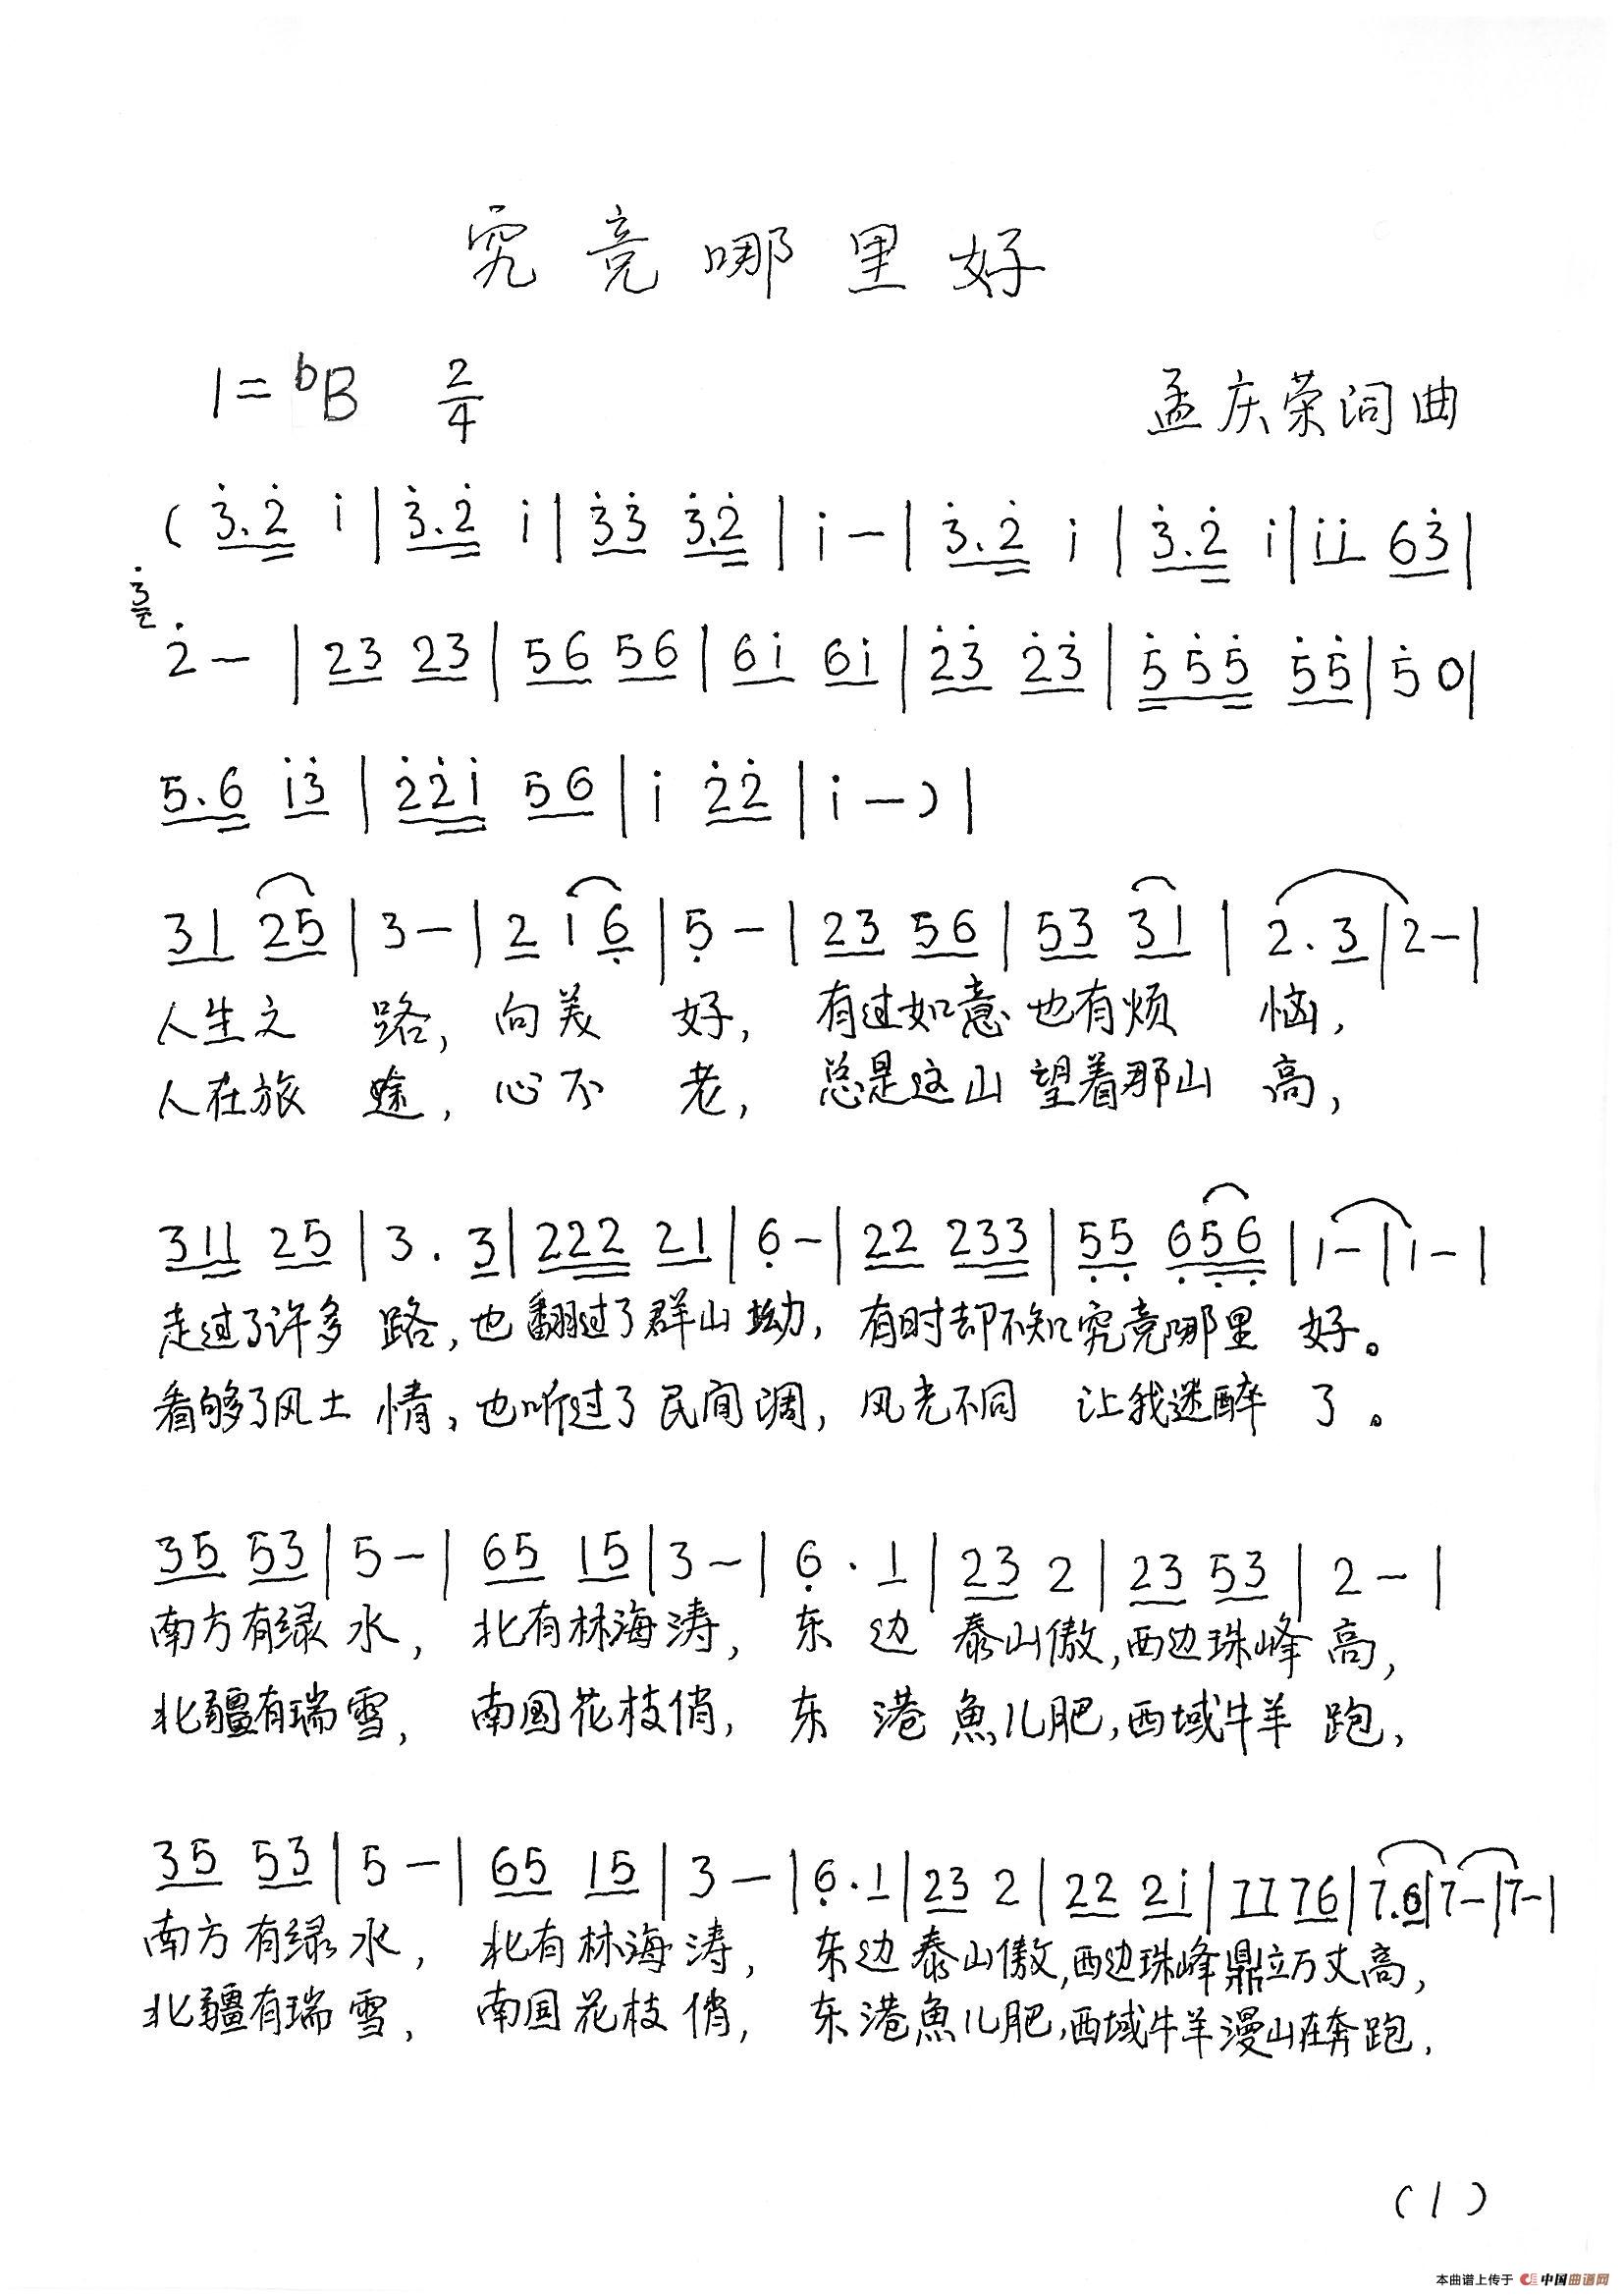 究竟哪里好
1=bB 2/4 孟庆荣词曲
(3.2 i|3.2 i|33 3.2|i-|3.2 i|3.2 i|ii 63|
3 2-|23 23|56 56|6i 6i|23 23|555 55|50|
5.6 i3|22i 56|i 22|i-)|
31 25|3-|2 1 6|5-|23 56|53 31|2.3|2-|
人生之路,向美好,有过如意也有烦恼,
人在旅途,心不老,总是这山望着那山高,
311 25|3.3|222 21|6-|22 233|55 656|1-|1-|
走过了许多路,也翻过了群山坳,有时却不知究竟哪里好。
看够了风土情,也听过了民间调,风光不同让我迷醉了。
35 53|5-|65 15|3-|6.1|23 2|23 53|2-|
南方有绿水,北有林海涛,东边泰山傲,西边珠峰高,
北疆有瑞雪,南国花枝俏,东港魚儿肥,西域牛羊跑,
35 53|5-|65 15|3-|6.1|23 2|22 2i|77 76|7.6|7-|7-|
南方有绿水,北有林海涛,东边泰山傲,西边珠峰鼎立万丈高,
北疆有瑞雪,南国花枝俏,东港魚儿肥,西域牛羊漫山在奔跑,
(1)
本曲谱上传于 中国曲谱网